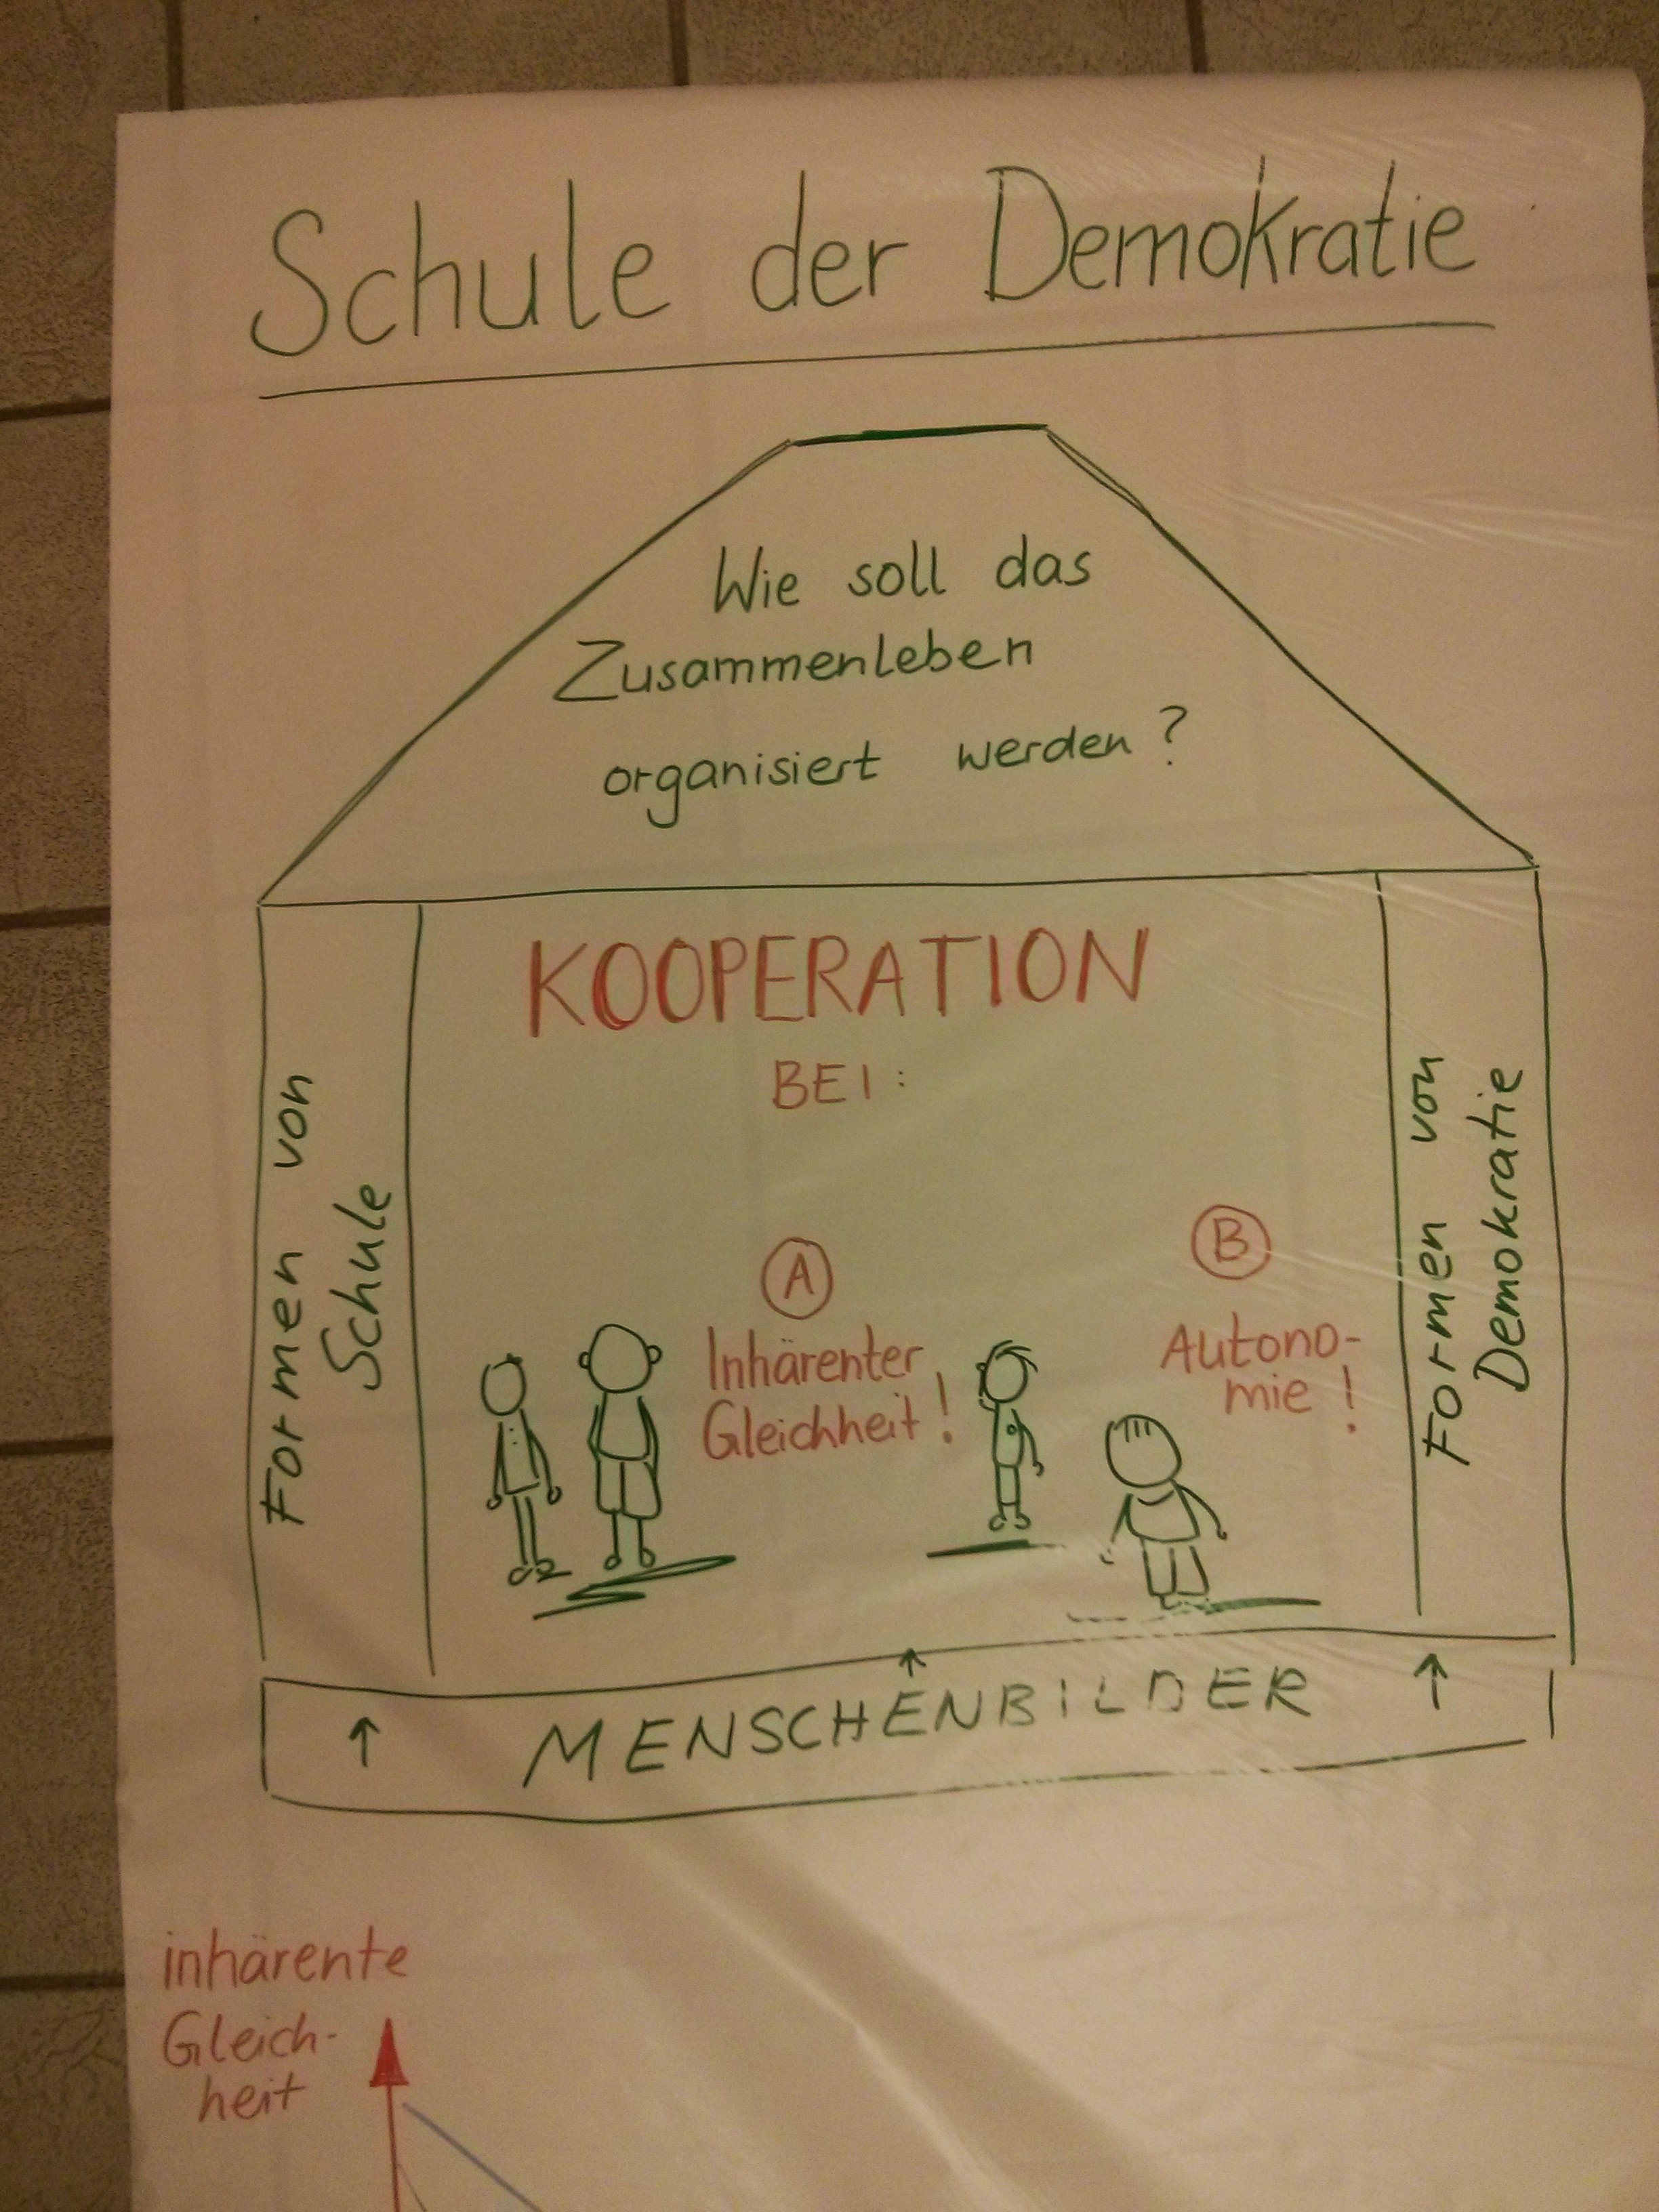 Schule der Demokratie
Wie soll das
Zusammenleben
organisiert werden?
Formen von
Schule
KOOPERATION
BEI:
A
Inhärenter
Gleichheit!
B
Autono-
mie!
Formen von
Demokratie
MENSCHENBILDER
inhärente
Gleich-
heit